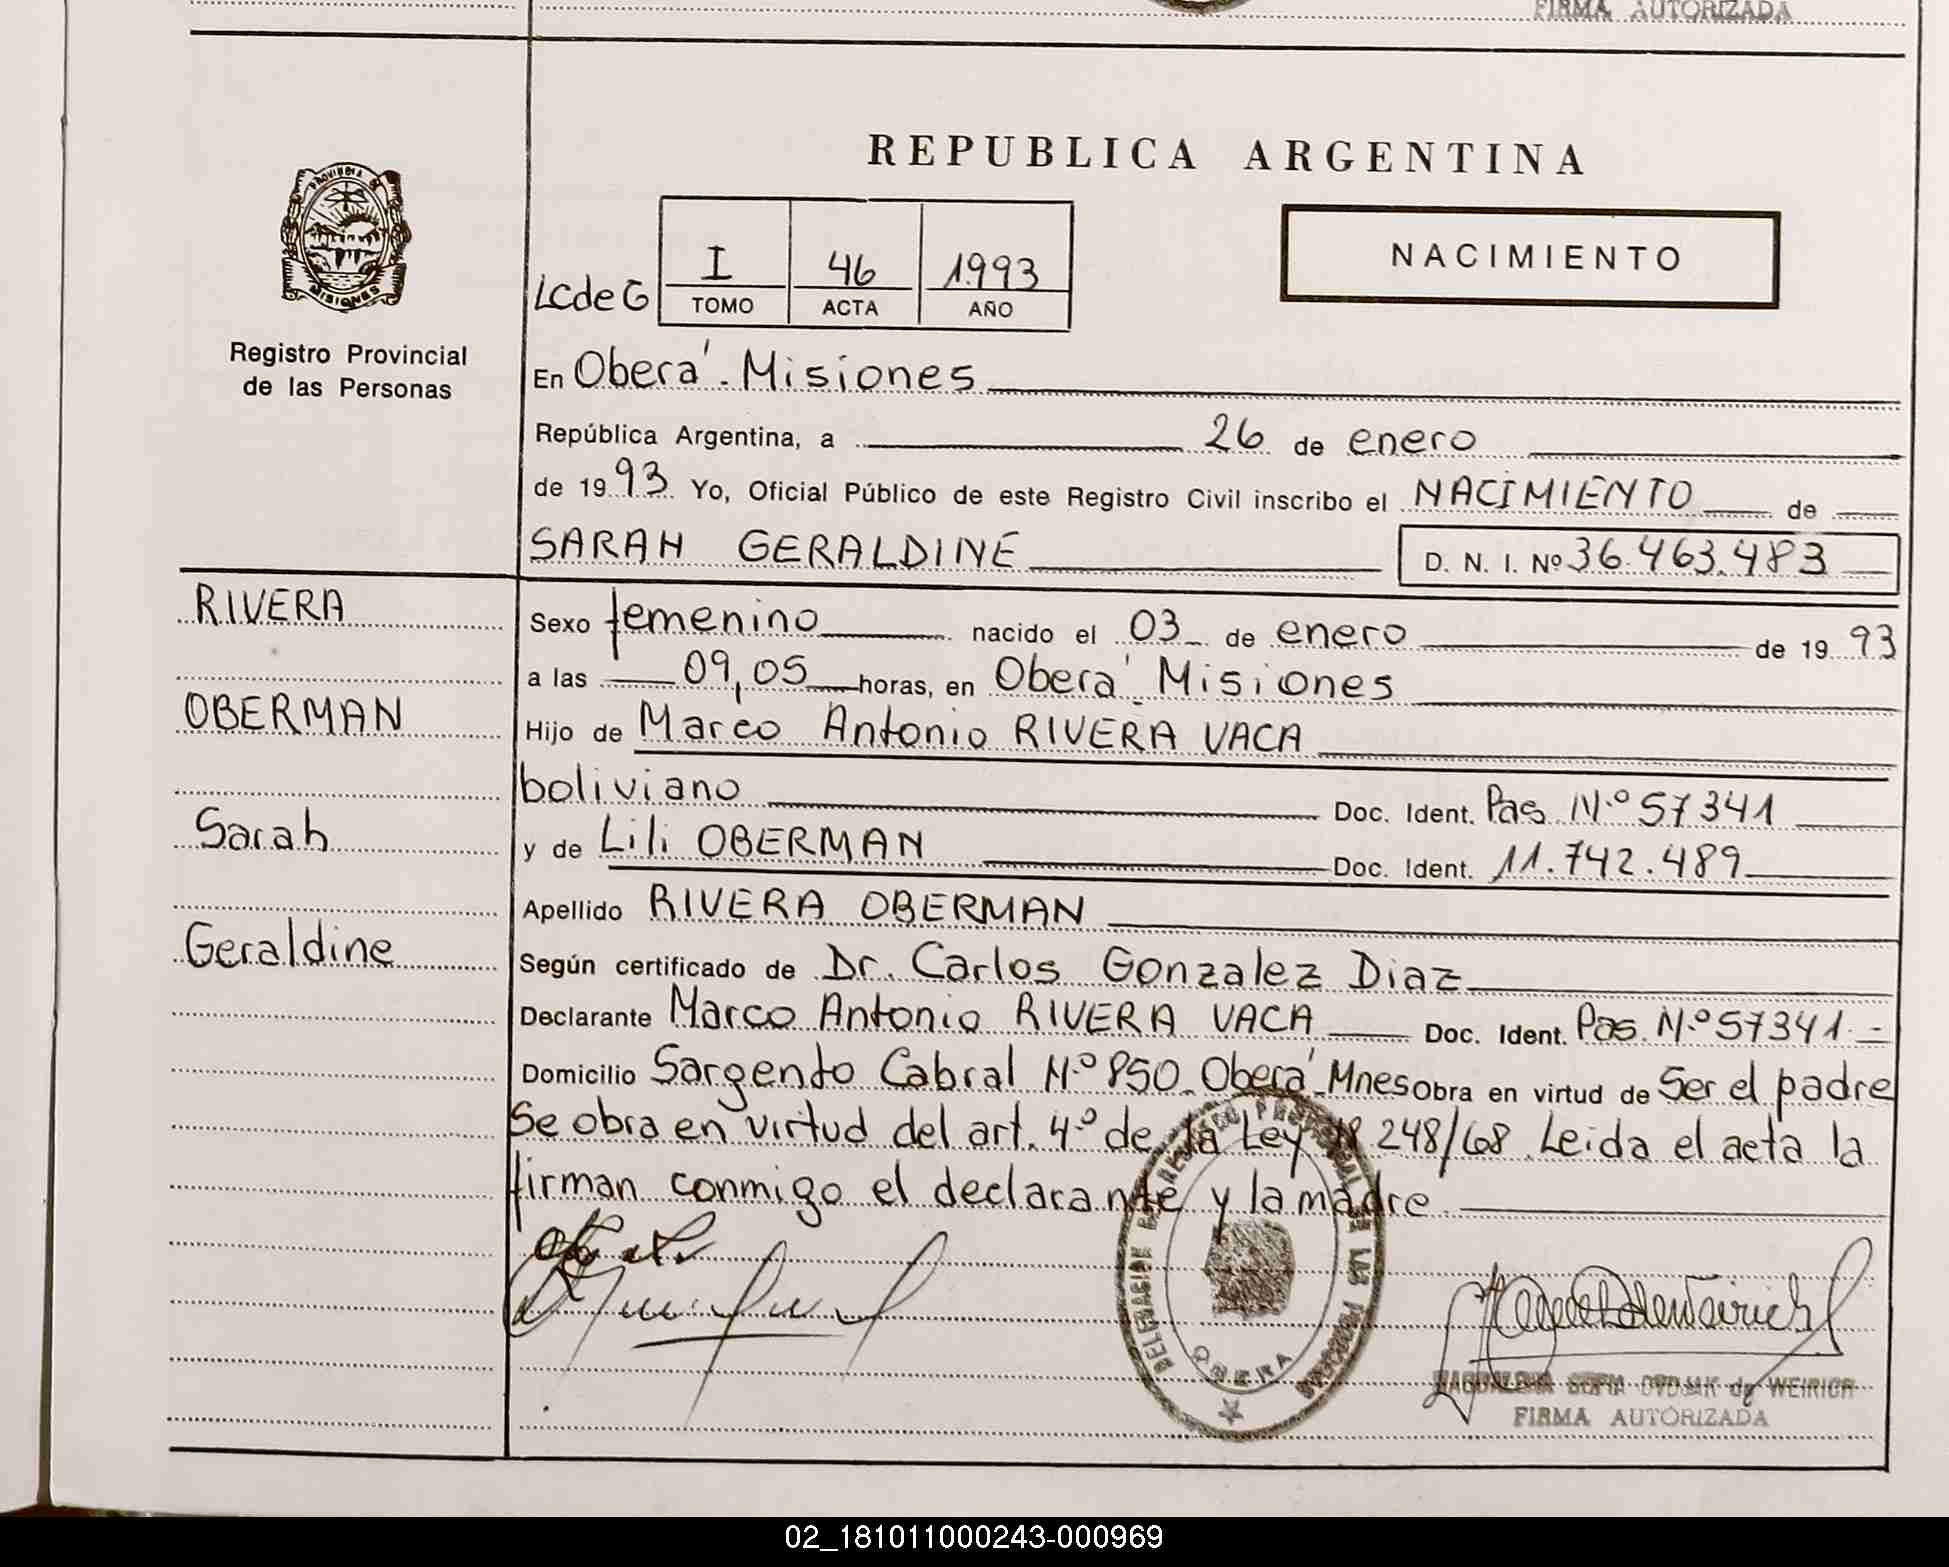 FIRMA AUTORIZADA
REPUBLICA ARGENTINA
PROVINCIA DE
MISIONES
Registro Provincial
de las Personas
LCdeG I 46 1993
TOMO ACTA AÑO
NACIMIENTO
En Oberá. Misiones
República Argentina, a 26 de enero
de 1993 Yo, Oficial Público de este Registro Civil inscribo el NACIMIENTO de
SARAH GERALDINE D. N. I. Nº 36.463.483
RIVERA
OBERMAN
Sarah
Geraldine
Sexo femenino nacido el 03 de enero de 1993
a las 09,05 horas, en Oberá Misiones
Hijo de Marco Antonio RIVERA VACA
boliviano Doc. Ident. Pas. N.º 57341
y de Lili OBERMAN Doc. Ident. 11.742.489
Apellido RIVERA OBERMAN
Según certificado de Dr. Carlos Gonzalez Diaz
Declarante Marco Antonio RIVERA VACA Doc. Ident. Pas. N.º 57341.-
Domicilio Sargento Cabral N.º 850. Oberá Mnes Obra en virtud de Ser el padre
Se obra en virtud del art. 4.º de la Ley 18.248/68. Leida el acta la
firman conmigo el declarante y la madre
OBERA
de WEIRICH
FIRMA AUTORIZADA
02_181011000243-000969